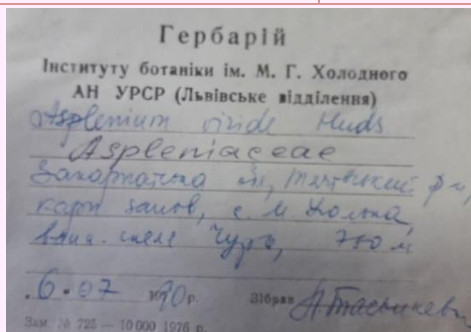 Гербарій
Інституту ботаніки ім. М. Г. Холодного
АН УРСР (Львівське відділення)
Asplenium viride Huds
Aspleniaceae
Закарпатська обл, Тячівський р-н,
запов,
скеля 700 м
.6.07 1990р. Зібрав
Зам. № 725 — 10 000 1976 р.